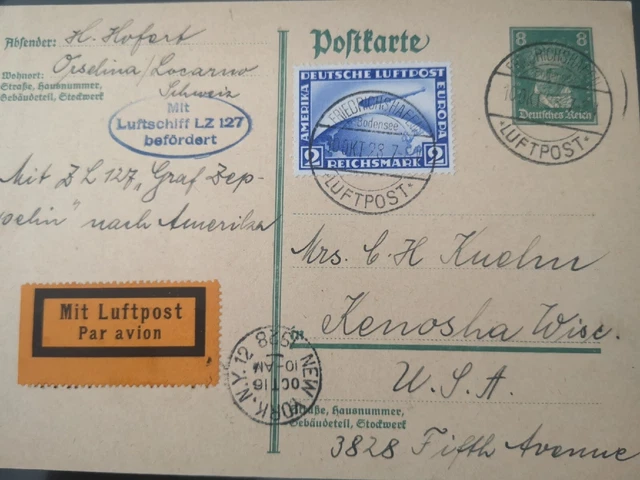 Absender: H. Hofert
Wohnort: Orselina/Locarno
Straße, Hausnummer, Schweiz
Gebäudeteil, Stockwerk
Mit
Luftschiff LZ 127
befördert
Mit ZL 127 „Graf Zep-
pelin" nach Amerika
Mit Luftpost
Par avion
Postkarte
DEUTSCHE LUFTPOST
AMERIKA
EUROPA
2 REICHSMARK 2
FRIEDRICHSHAFEN
Bodensee
OKT 28 7-
LUFTPOST
8 8
Deutsches Reich
FRIEDRICHSHAFEN
LUFTPOST
Mrs. C H Kuehn
in
Kenosha Wisc.
U.S.A.
Straße, Hausnummer,
Gebäudeteil, Stockwerk
3828 Fifth Avenue
NEW YORK, N.Y. 12 1928
OCT 16
10-AM